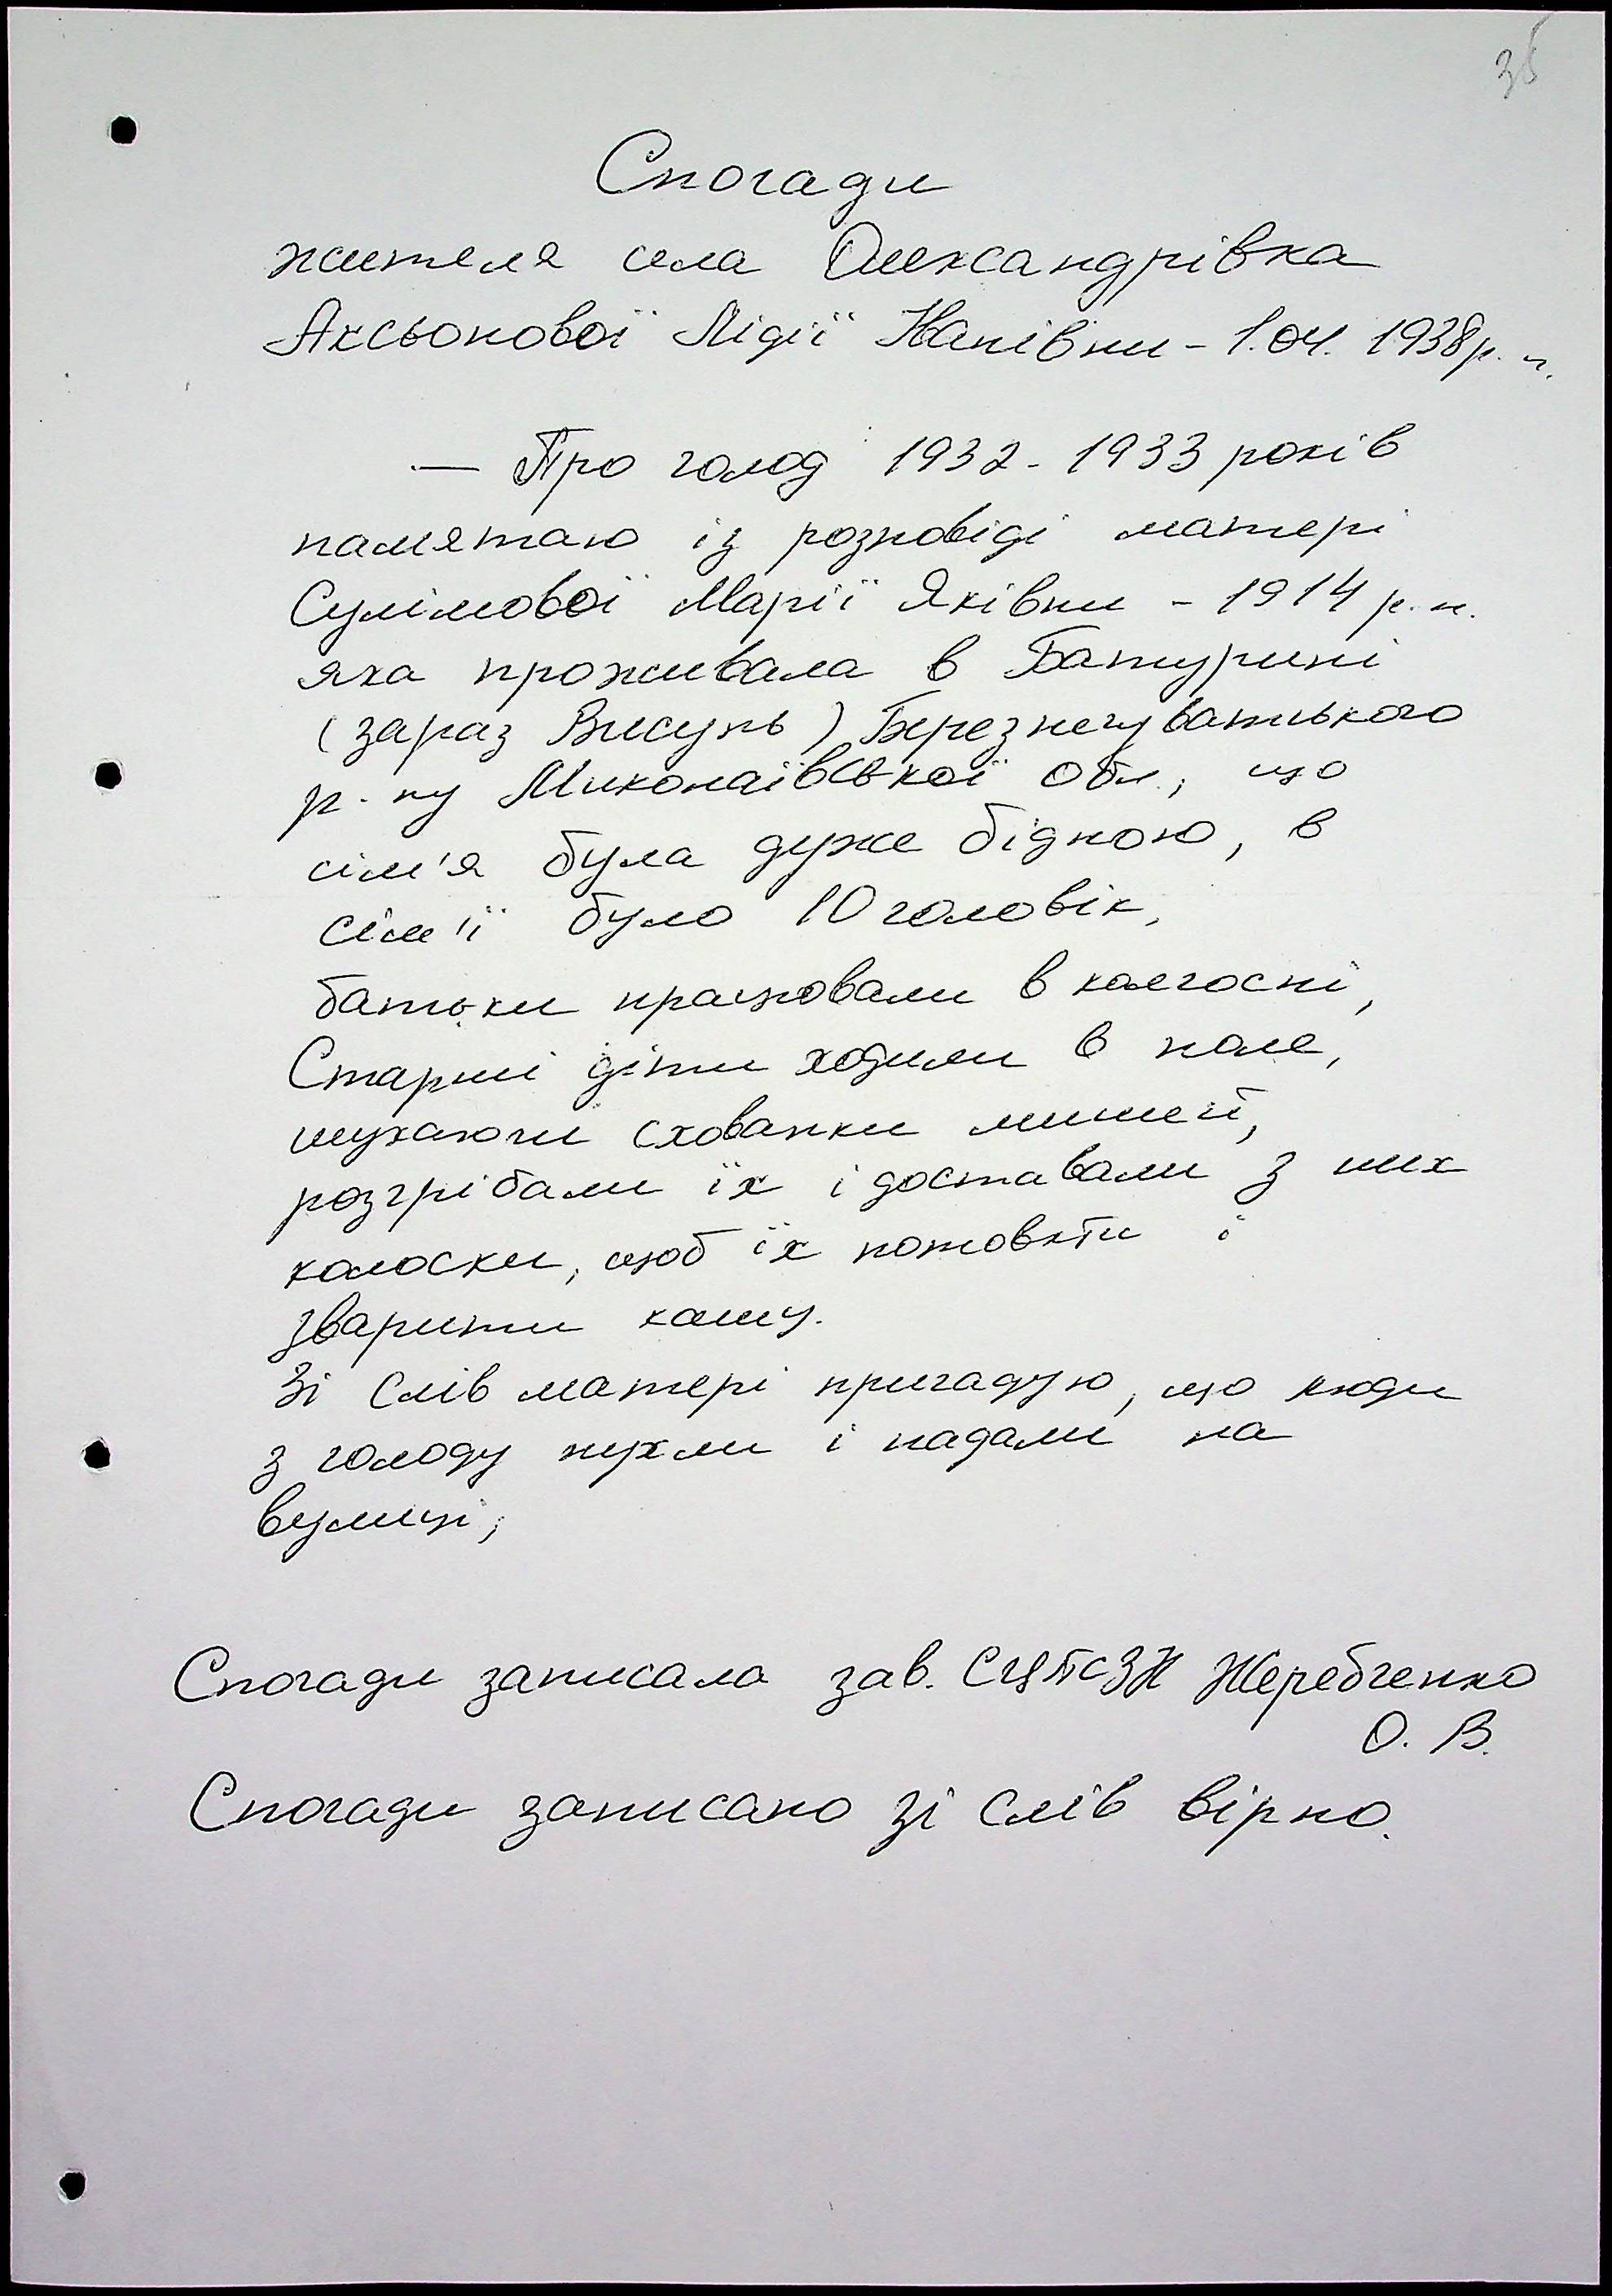 35
Спогади
жителя села Олександрівка
Аксьонової Лідії Іванівни - 1.04. 1938р. н.
— Про голод 1932 - 1933 років
памятаю із розповіді матері
Сулімової Марії Яківни - 1914 р. н.
яка проживала в Батурині
(зараз Висунь) Березнегуватського
р. ну Миколаївської обл., що
сім'я була дуже бідною, в
сім'ї було 10 чоловік,
батьки працювали в колгоспі,
Старші діти ходили в поле,
шукаючи схованки мишей,
розгрібали їх і доставали з них
колоски, щоб їх потовкти і
зварити кашу.
Зі слів матері пригадую, що люди
з голоду пухли і падали на
вулиці,
Спогади записала зав. СЦПСЗН Жеребченко
О. В.
Спогади записано зі слів вірно.